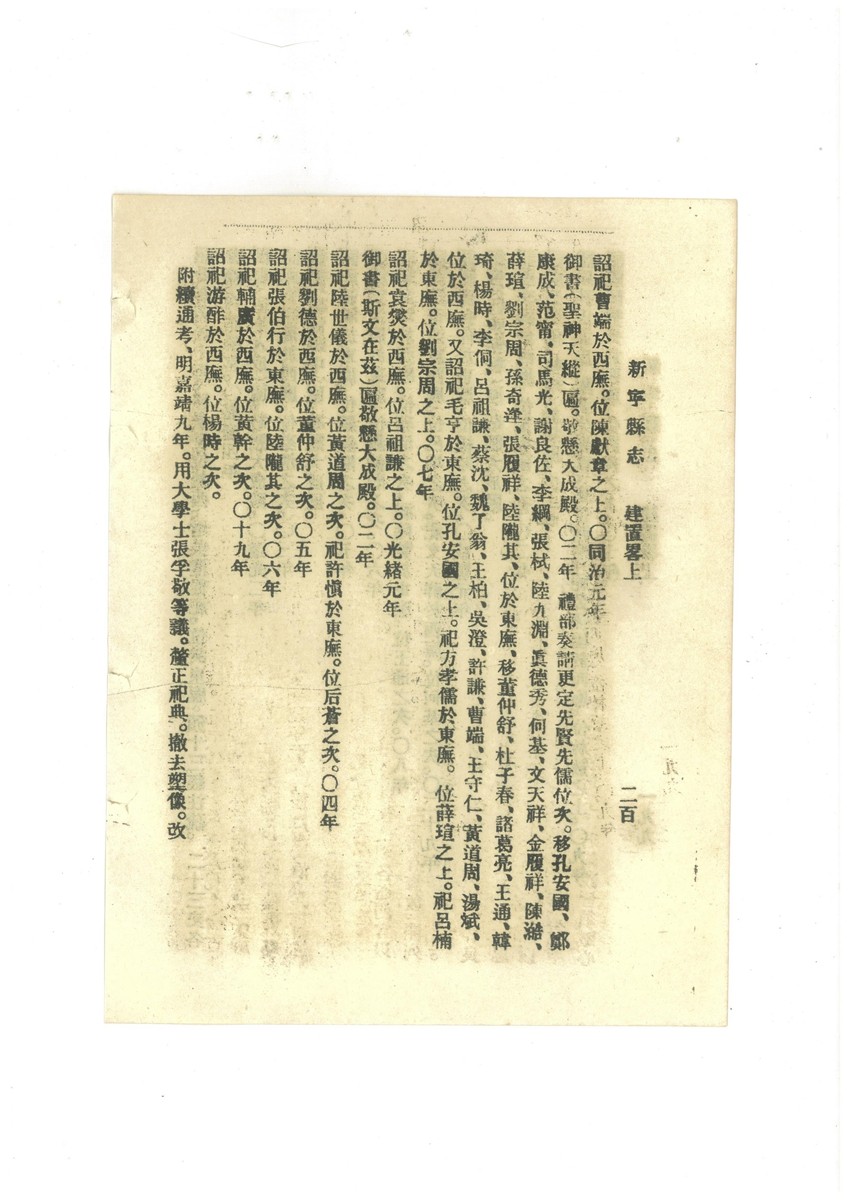 新寧縣志　建置畧上　二百
詔祀曹端於西廡。位陳獻章之上。〇同治元年
御書（聖神天縱）匾。敬懸大成殿。〇二年　禮部奏請更定先賢先儒位次。移孔安國、鄭
康成、范甯、司馬光、謝良佐、李綱、張栻、陸九淵、眞德秀、何基、文天祥、金履祥、陳澔、
薛瑄、劉宗周、孫奇逢、張履祥、陸隴其、位於東廡、移董仲舒、杜子春、諸葛亮、王通、韓
琦、楊時、李侗、呂祖謙、蔡沈、魏了翁、王柏、吳澄、許謙、曹端、王守仁、黃道周、湯斌、
位於西廡。又詔祀毛亨於東廡。位孔安國之上。祀方孝儒於東廡。位薛瑄之上。祀呂楠
於東廡。位劉宗周之上。〇七年
詔祀袁燮於西廡。位呂祖謙之上。〇光緒元年
御書（斯文在茲）匾敬懸大成殿。〇二年
詔祀陸世儀於西廡。位黃道周之次。祀許愼於東廡。位后蒼之次。〇四年
詔祀劉德於西廡。位董仲舒之次。〇五年
詔祀張伯行於東廡。位陸隴其之次。〇六年
詔祀輔廣於西廡。位黃幹之次。〇十九年
詔祀游酢於西廡。位楊時之次。
附續通考、明嘉靖九年。用大學士張孚敬等議。釐正祀典。撤去塑像。改